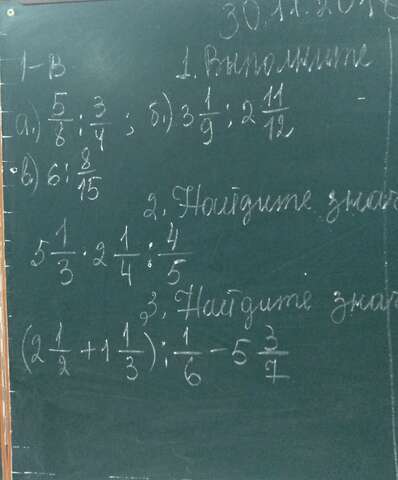 30.11.201
1-В 1. Выполните
а.) 5/8 : 3/4 ; б.) 3 1/9 : 2 11/12
в) 6 : 8/15
2. Найдите знач
5 1/3 : 2 1/4 : 4/5
3. Найдите знач
(2 1/2 + 1 1/3) : 1/6 - 5 3/7